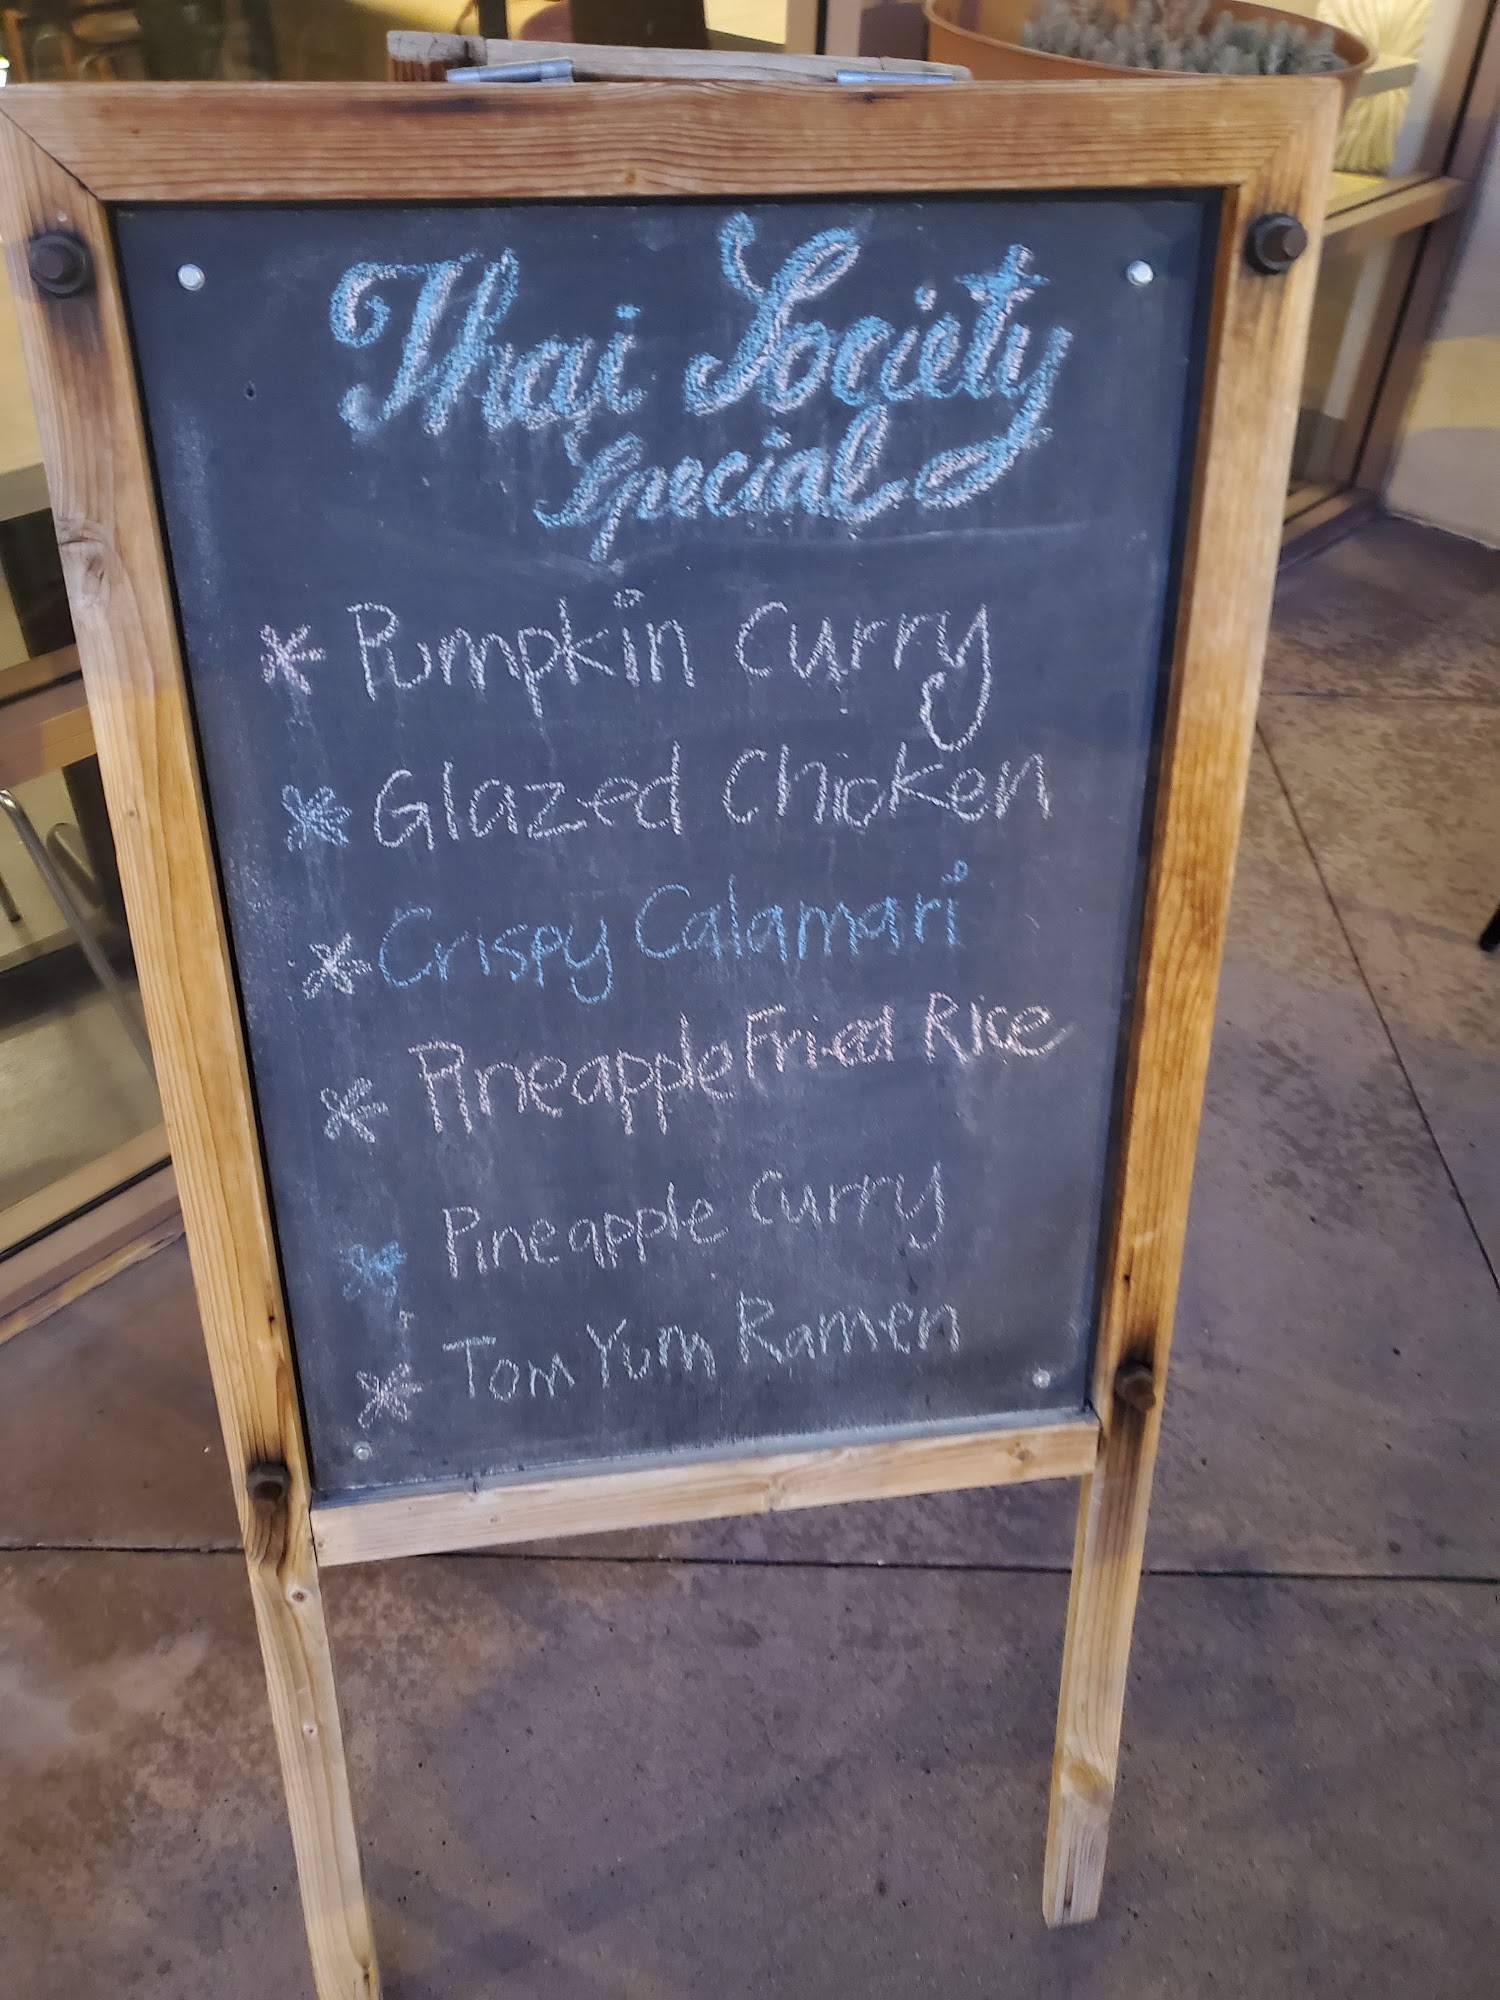 Thai Society
Special
* Pumpkin Curry
* Glazed Chicken
* Crispy Calamari
* Pineapple Fried Rice
* Pineapple Curry
* Tom Yum Ramen